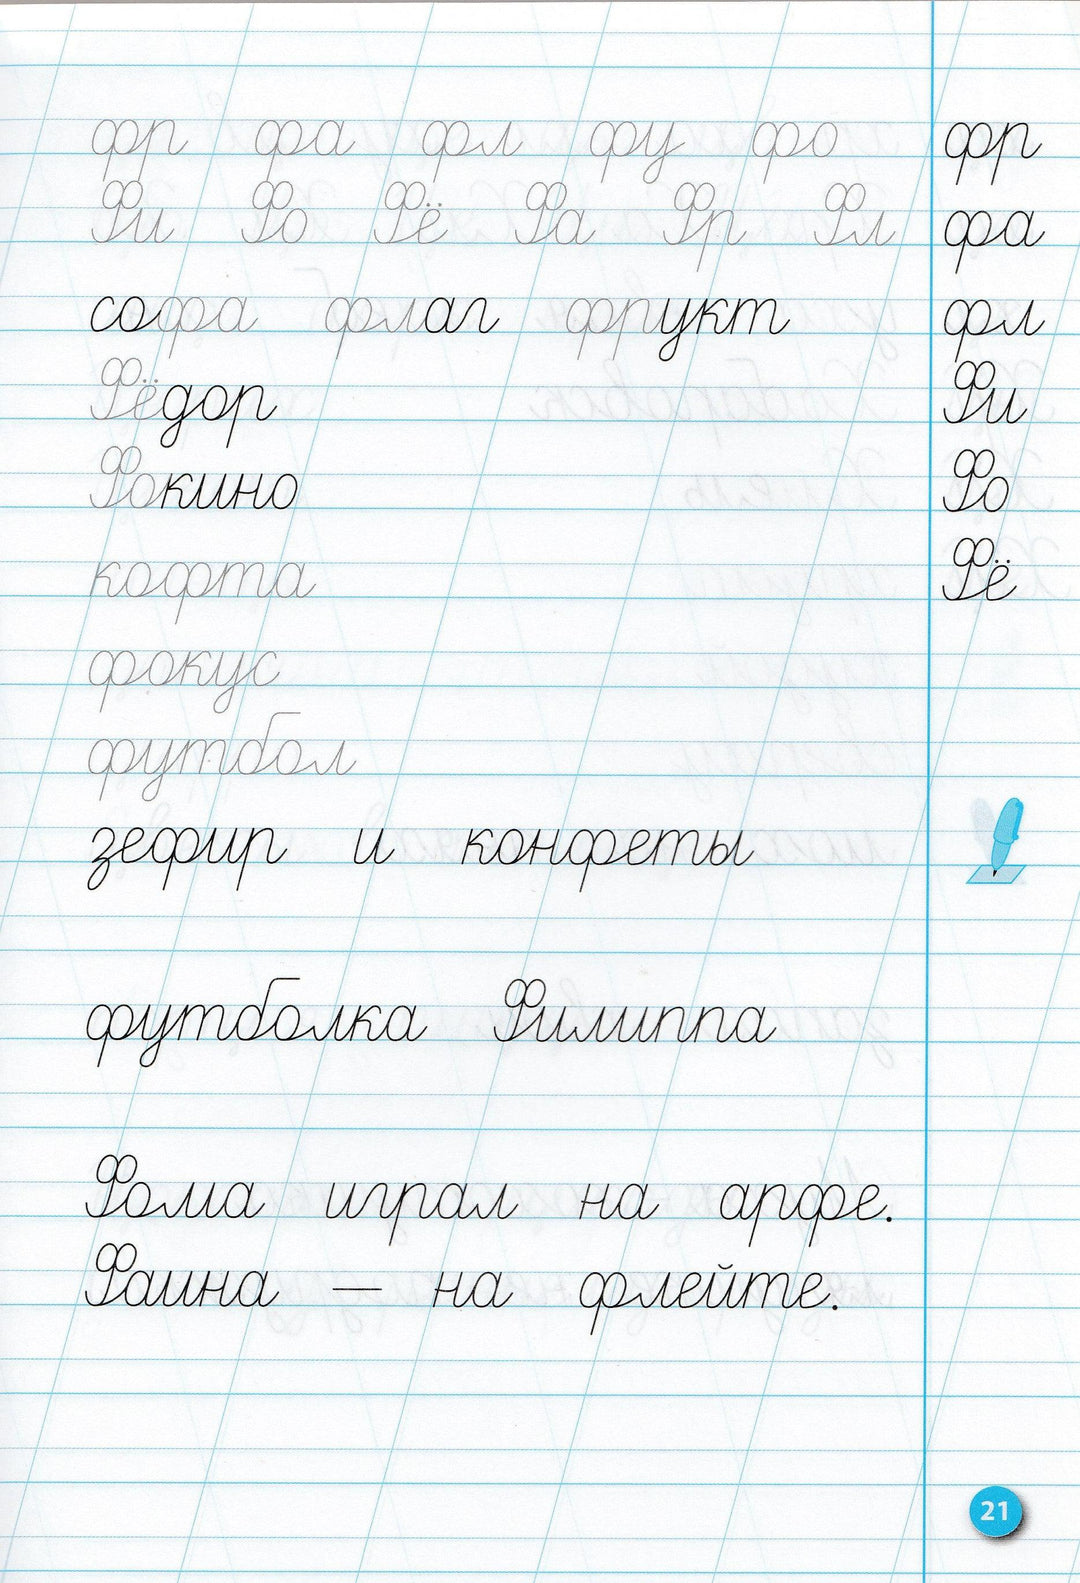 фр фа фл фу фо фр
Фи Фо Фё Фа Фр Фл фа
софа флаг фрукт фл
Фёдор Фи
Фокино Фо
кофта Фё
фокус
футбол
зефир и конфеты
футболка Филиппа
Фома играл на арфе.
Фаина — на флейте.
21